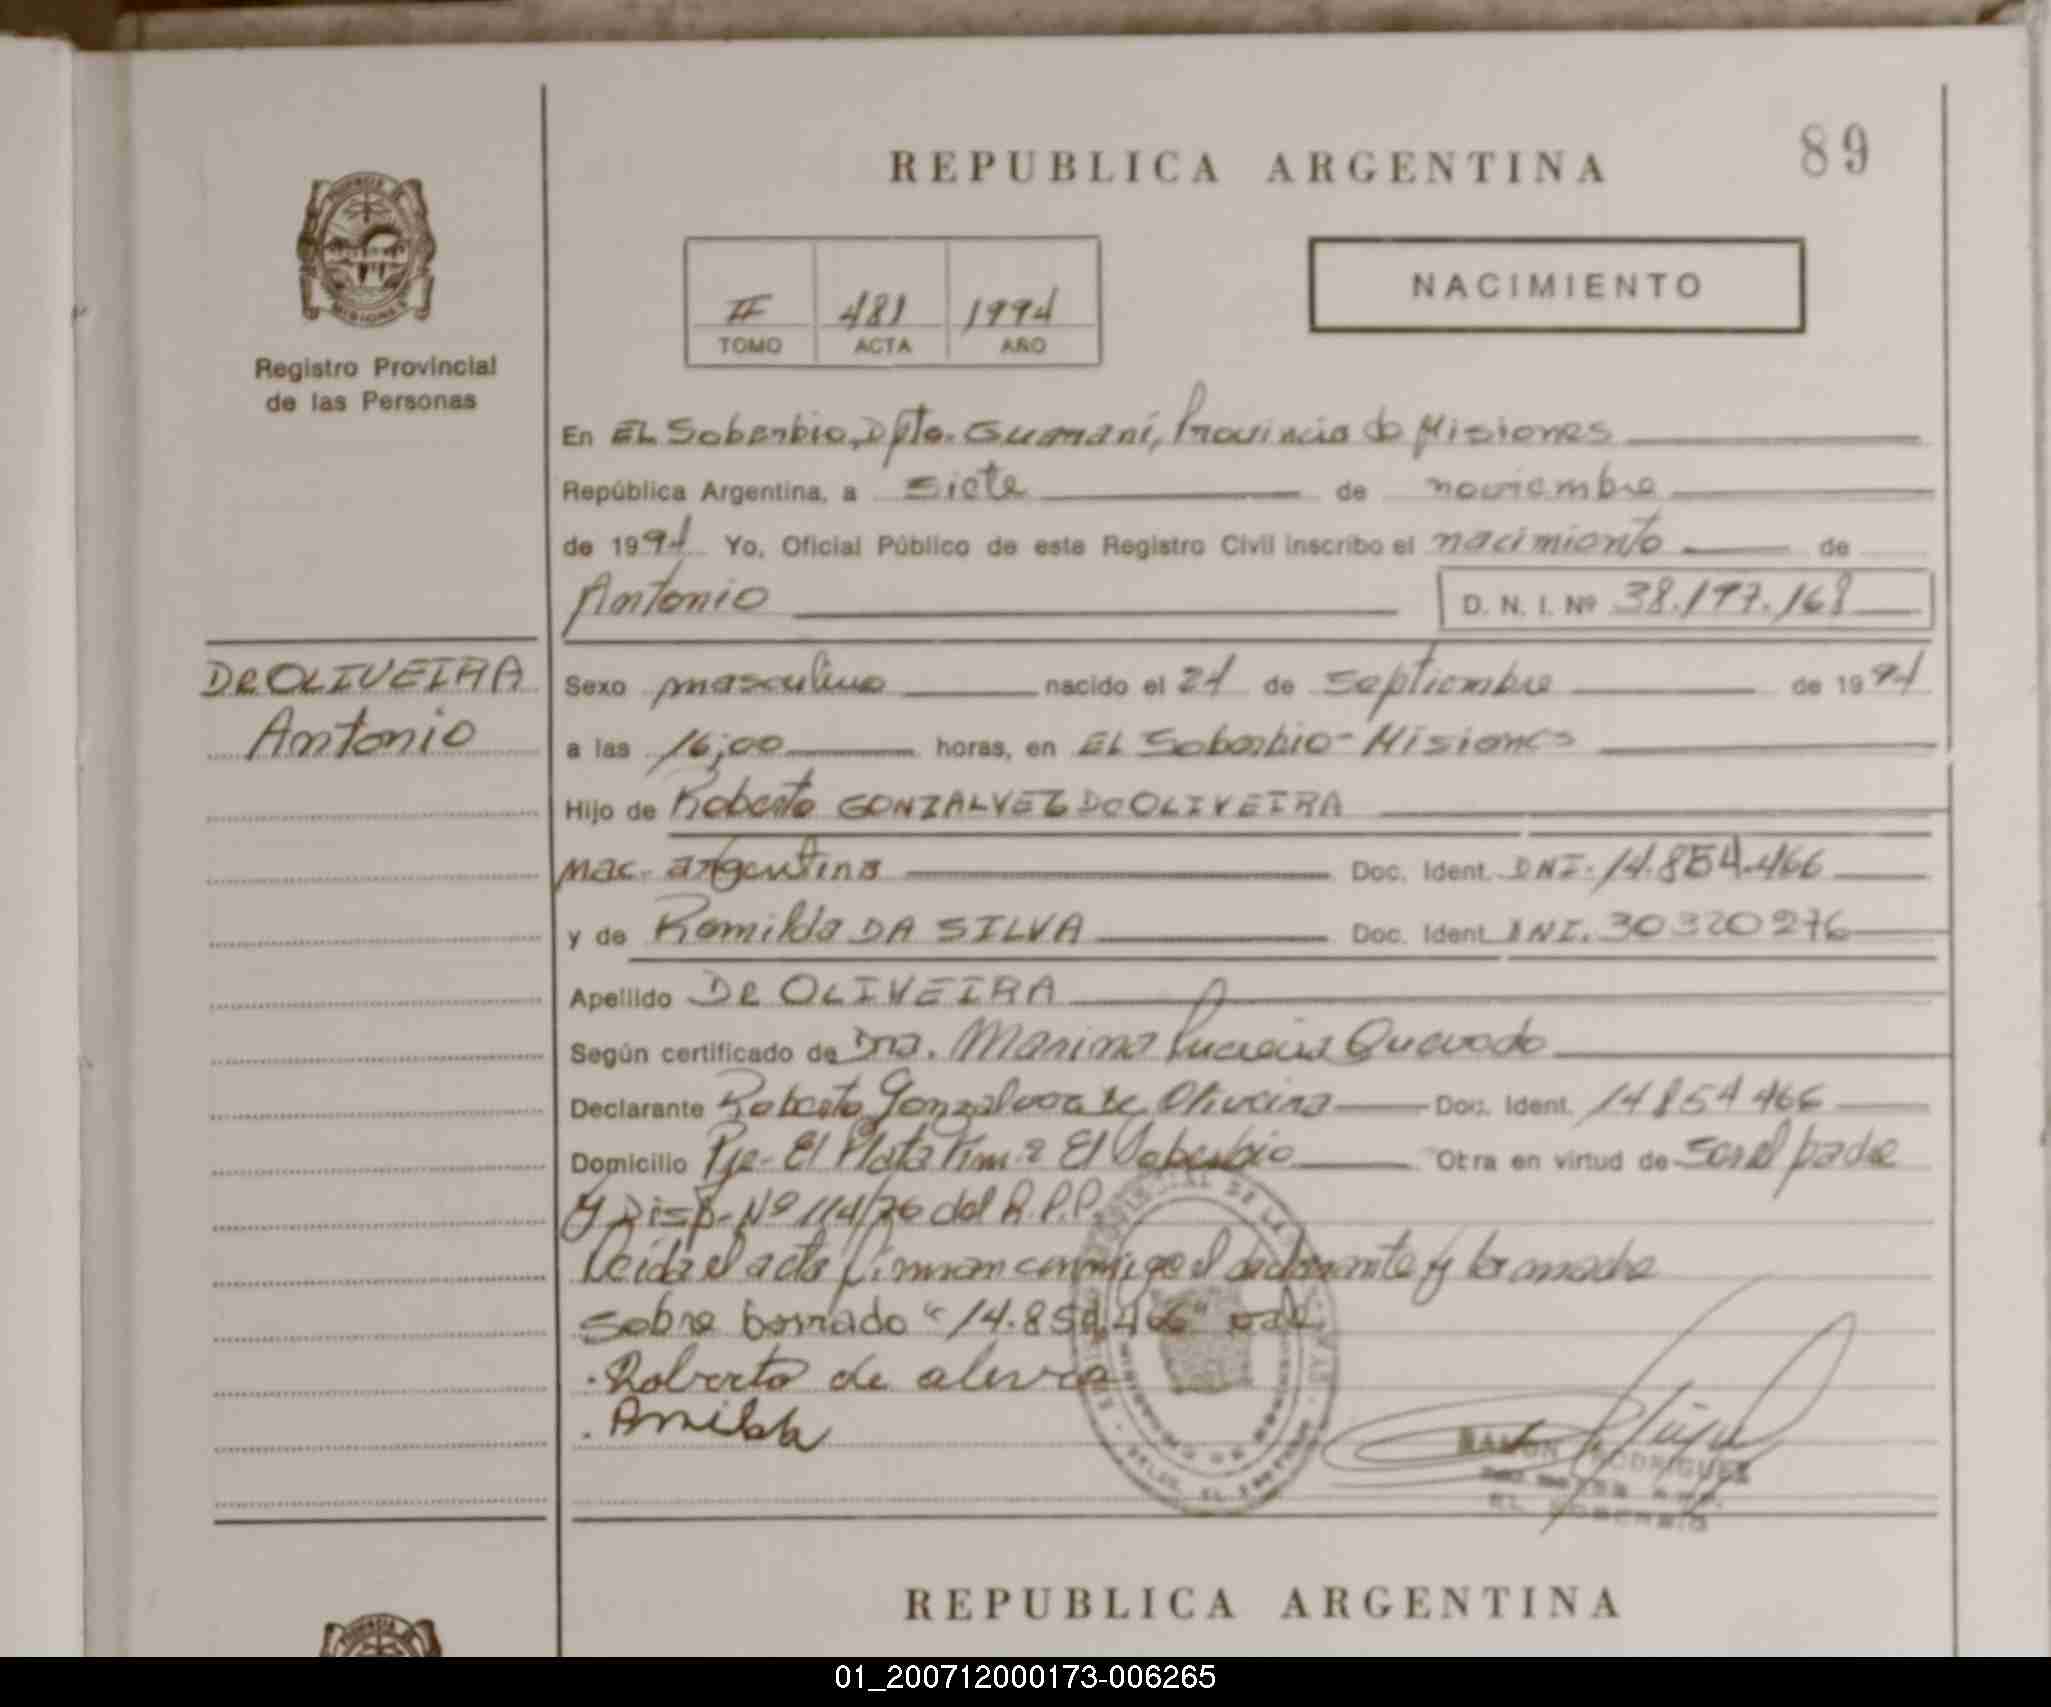 REPUBLICA ARGENTINA
89
NACIMIENTO
II 481 1994
TOMO ACTA AÑO
Registro Provincial
de las Personas
En EL Soberbio, Dpto. Guaraní, Provincia de Misiones
República Argentina, a siete de noviembre
de 1994 Yo, Oficial Público de este Registro Civil inscribo el nacimiento de
Antonio D. N. I. Nº 38.197.168
De OLIVEIRA
Antonio
Sexo masculino nacido el 24 de septiembre de 1994
a las 16,00 horas, en EL Soberbio - Misiones
Hijo de Roberto GONZALVEZ De OLIVEIRA
nac. argentina Doc. Ident. DNI. 14.854.466
y de Romilda DA SILVA Doc. Ident. DNI. 30320276
Apellido De OLIVEIRA
Según certificado de Dra. Quevedo
Declarante Roberto de Oliveira Doc. Ident. 14854466
Domicilio Pje. El Soberbio Otra en virtud de ser el padre
y Disp. Nº 114/76 del R.P.P.
Leida el acta firman conmigo el declarante y la madre
sobre borrado "14.854.466" vale
Roberto de
RAMON RODRIGUEZ
EL SOBERBIO
REPUBLICA ARGENTINA
01_200712000173-006265